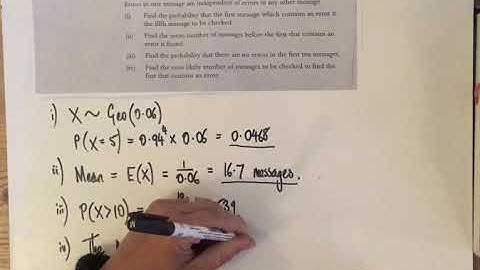 Errors in one message are independent of errors in any other message
(i) Find the probability that the first message which contains an error is
the fifth message to be checked
(ii) Find the mean number of messages before the first that contains an
error is found
(iii) Find the probability that there are no errors in the first ten messages,
(iv) Find the most likely number of messages to be checked to find the
first that contains an error
i) X ~ Geo(0.06)
P(X=5) = 0.94⁴ x 0.06 = 0.0468
ii) Mean = E(X) = 1/0.06 = 16.7 messages.
iii) P(X>10) =
iv) The